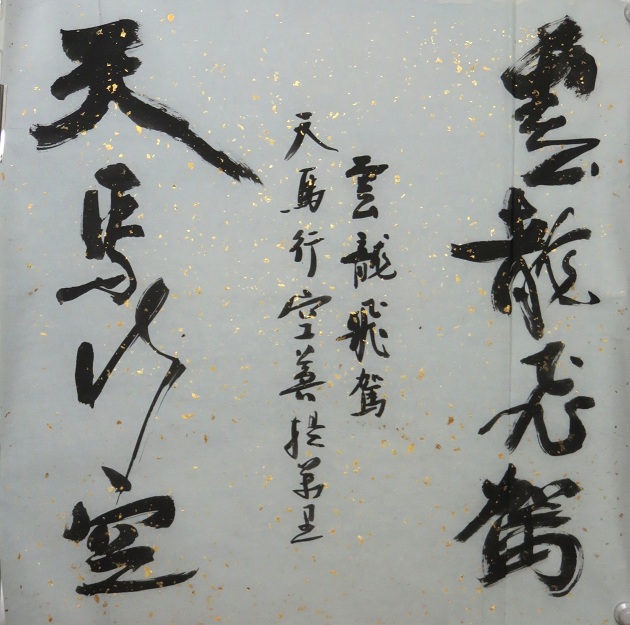 雲龍飛駕
雲龍飛駕
天馬行空菩提萬里
天馬行空